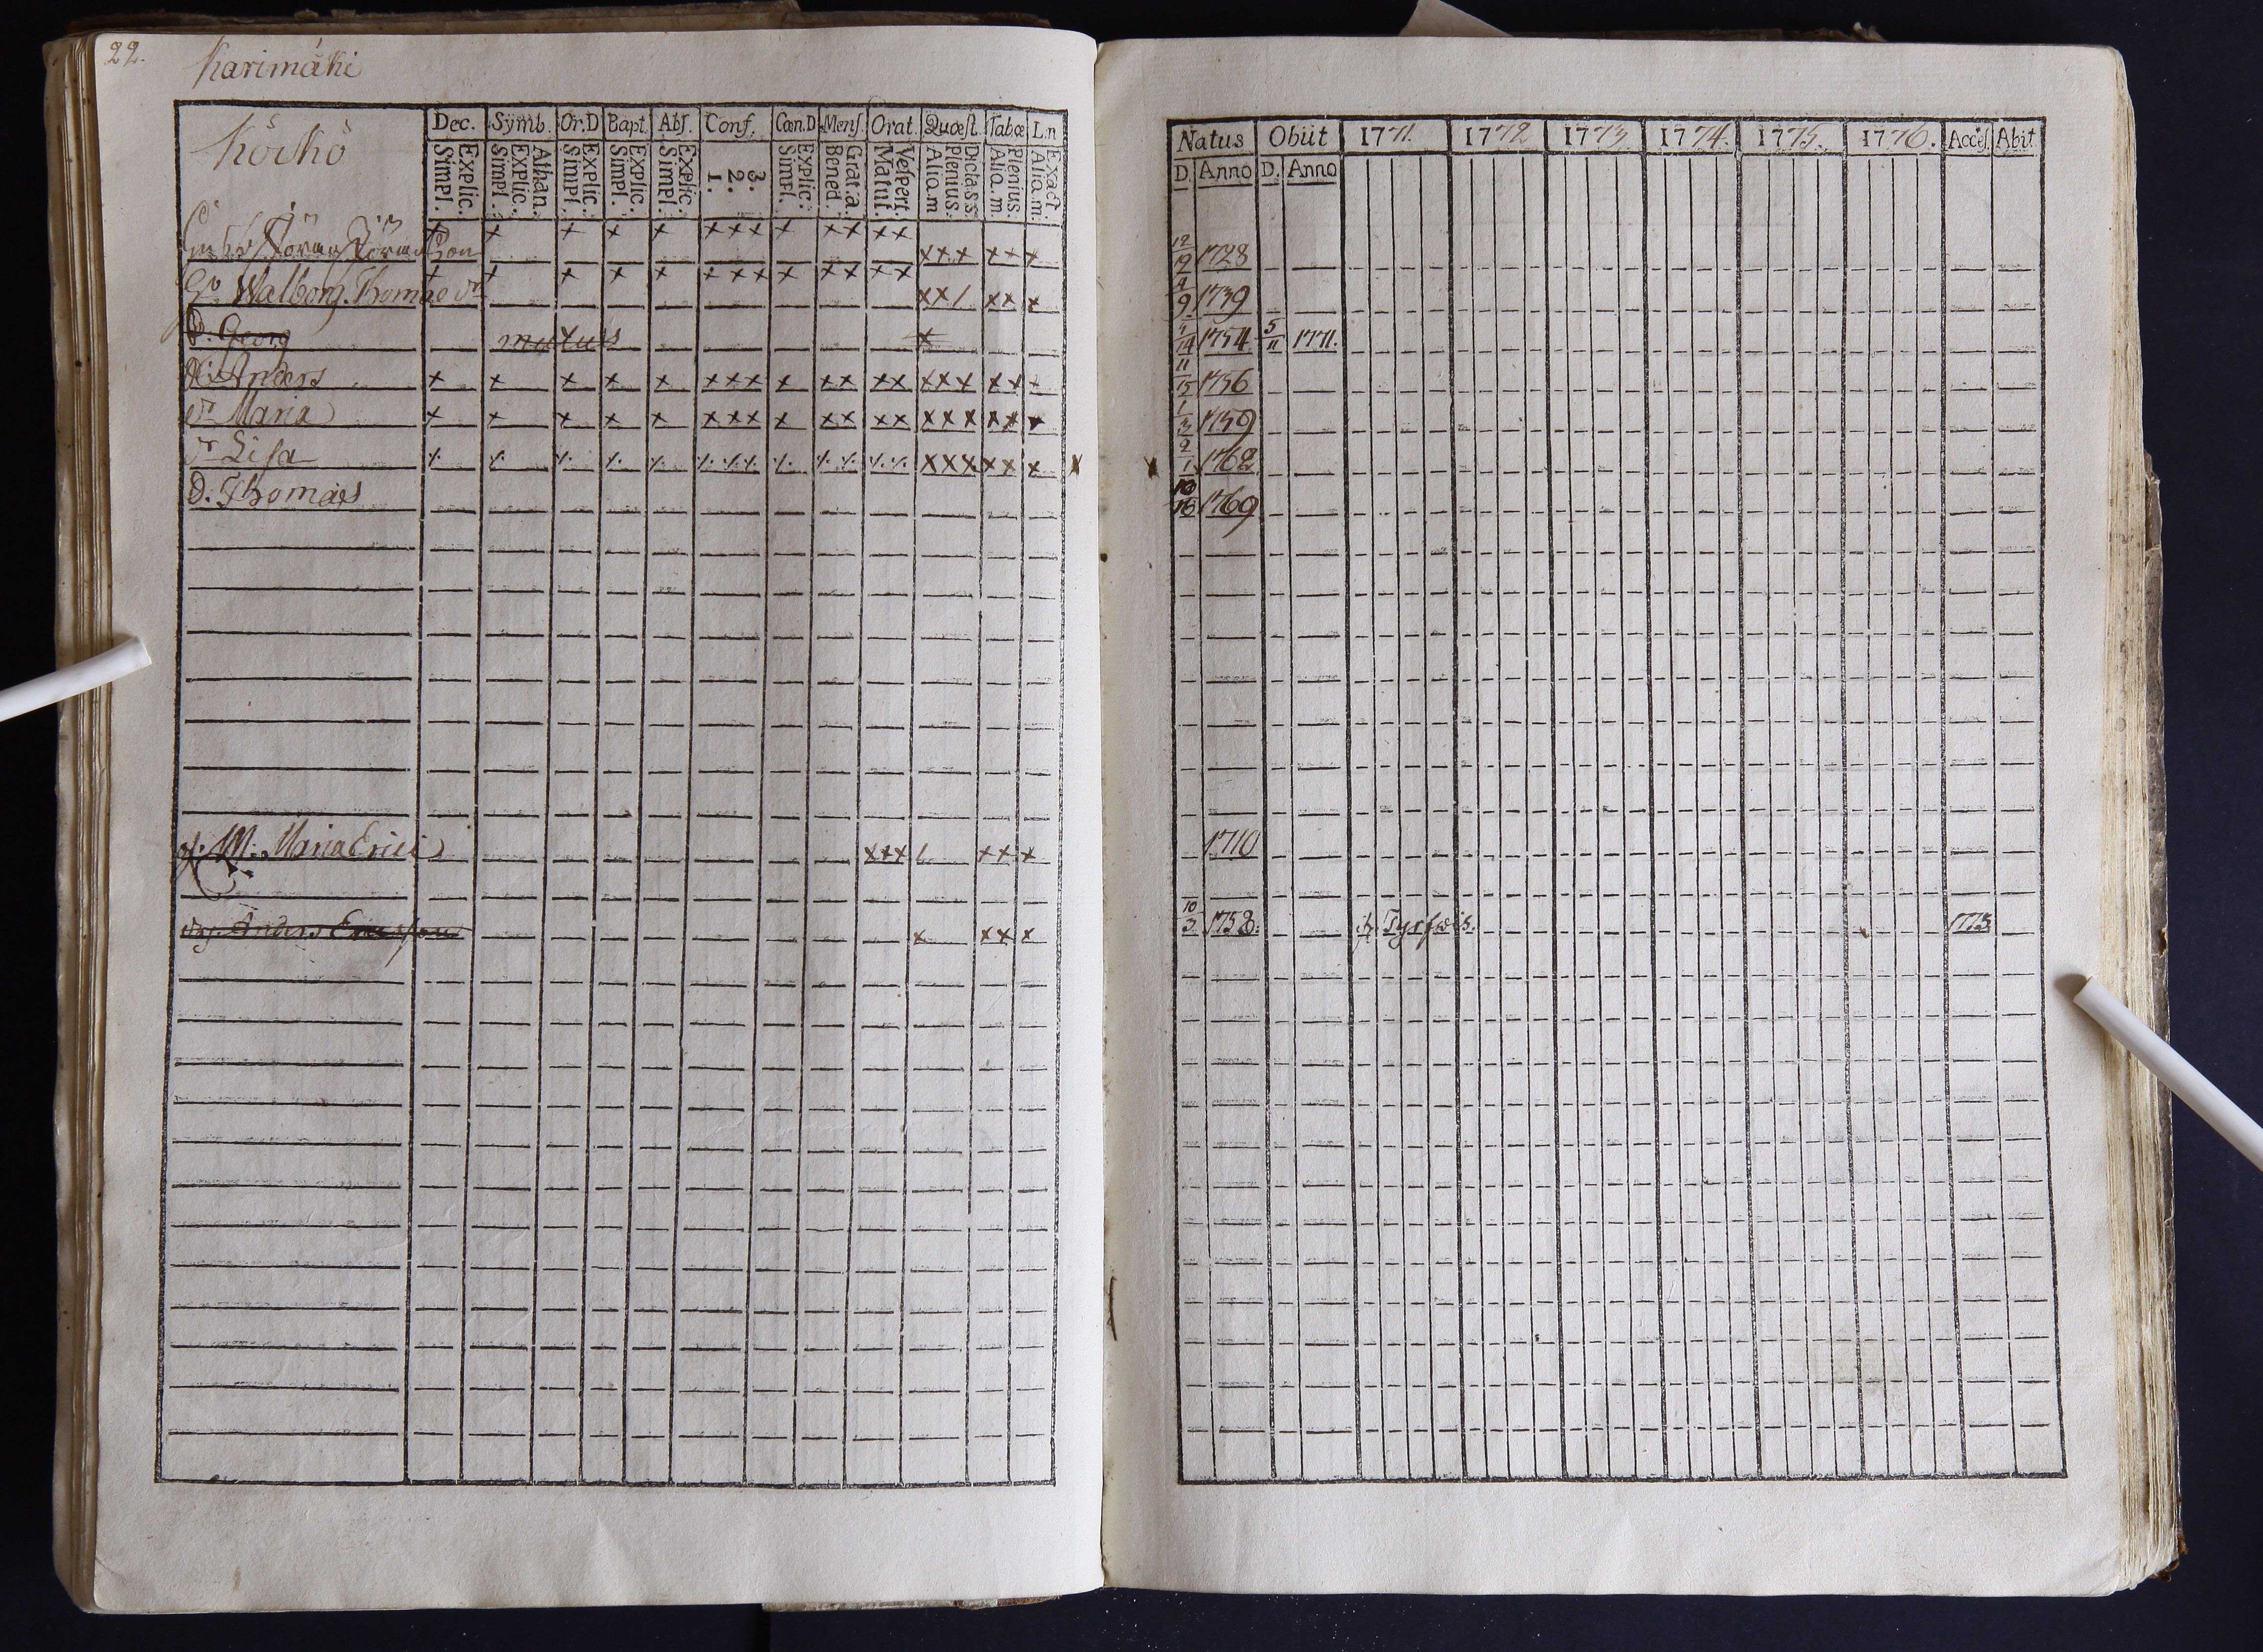 22.
Karimäki
Köikö
Dec. Symb. Or.D Bapt. Abs. Conf. Cœn.D Mens. Orat. Quæst. Tabœ L.n
Explic. Simpl. Athan. Explic. Simpl. Explic. Simpl. Explic. Simpl. Explic. Simpl. 3. 2. 1. Explic. Simpl. Grat.a. Bened. Vespert. Matut. Dicta.s.s. Plenius. Alia.m Plenius. Alia.m. Exact. Alia.m.
x x x x x x x x x x x x x x x x x x x x
Hu Walborg. Thomæ dr x x x x x x x x x x x x x x x / x x x
D: Georg mutus x
Anders x x x x x x x x x x x x x x x x x x x
dr Maria x x x x x x x x x x x x x x x x x x x
dr Lisa x x x x x x
D: Thomas
M: Maria Erici x x x x x x
Anders Ersson x x x x
Natus Obiit 1771. 1772 1773. 1774. 1775. 1776. Acces. Abit.
D. Anno D. Anno
12/12 1728
9 1739
14 1754 5/11 1771.
11/15 1756
1/3 1759
2/1 1762
10/16 1769
1710
10/3 1758. Tyrfwis. 1773